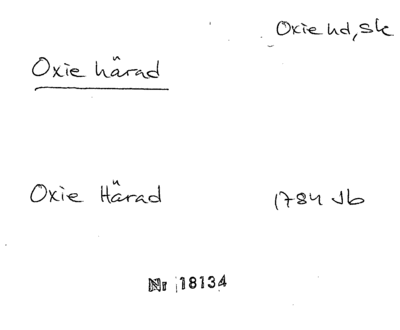 Oxie hd, Sk
Oxie härad
Oxie Härad 1784 Jb
Nr 18134